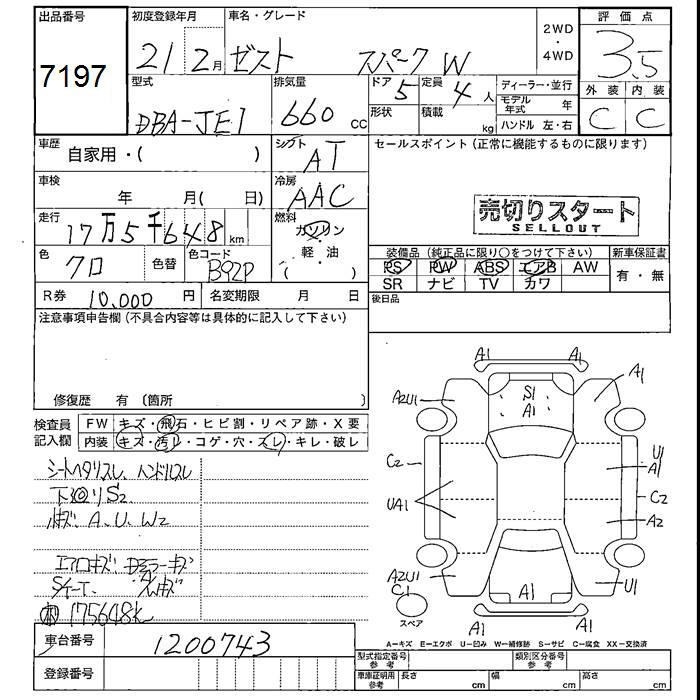 出品番号
7197
初度登録年月
21 2月
車名・グレード
ゼスト スパーク W
2WD
・
4WD
評価点
3.5
外装 内装
C C
型式
DBA-JE1
排気量
660 cc
ドア 5
形状
定員 4 人
積載 kg
ディーラー・並行
モデル年式 年
ハンドル 左・右
車歴
自家用・( )
シフト
AT
車検
年 月( 日)
冷房
AAC
走行
17万5千648 km
燃料
ガソリン
・
軽・油
( )
色
クロ
色替
色コード
B92P
R券 10,000 円
名変期限 月 日
セールスポイント (正常に機能するものに限ります)
売切りスタート
SELLOUT
装備品 (純正品に限り○をつけて下さい)
新車保証書
PS PW ABS エアB AW
SR ナビ TV カワ
有・無
後日品
注意事項申告欄 (不具合内容等は具体的に記入して下さい)
修復歴 有 〔箇所 〕
検査員記入欄
FW キズ・飛石・ヒビ割・リペア跡・X要
内装 キズ・汚レ・コゲ・穴・スレ・キレ・破レ
シートヘタリスレ、ハンドルスレ
下廻リS2
A、U、W2
エアロキズ ドアミラーキズ
175648K
A1 A1
A2U1
S1
A1
A1
C2
U1
A1
UA1
C2
A2
A2U1
C1
A1
U1
A1 A1
スペア
A−キズ E−エクボ U−凹み W−補修跡 S−サビ C−腐食 XX−交換済
車台番号
1200743
登録番号
型式指定番号
参考
類別区分番号
参考
車庫証明用
参考
長さ cm 幅 cm 高さ cm